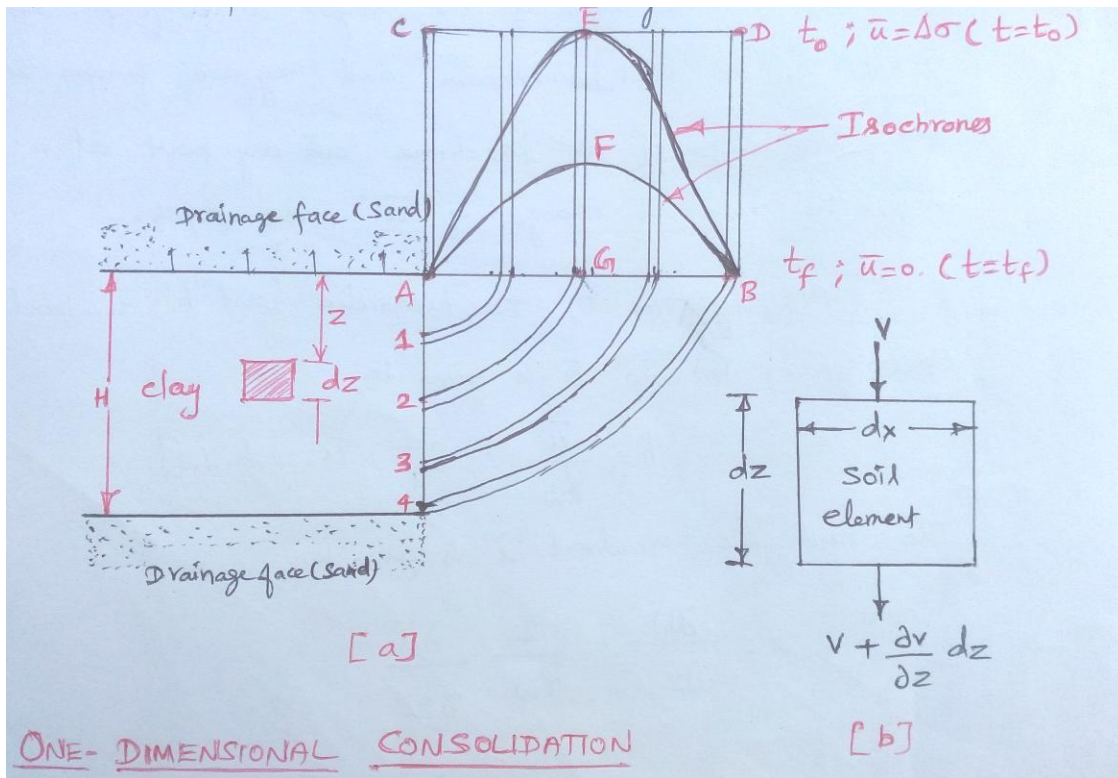 C
E
D
t₀ ; ū=Δσ (t=t₀)
Isochrones
F
Drainage face (Sand)
A
G
B
t_f ; ū=0. (t=t_f)
Z
1
H
clay
dz
2
3
4
Drainage face (Sand)
V
dx
dz
Soil
element
V + ∂v/∂z dz
[a]
[b]
ONE-DIMENSIONAL CONSOLIDATION